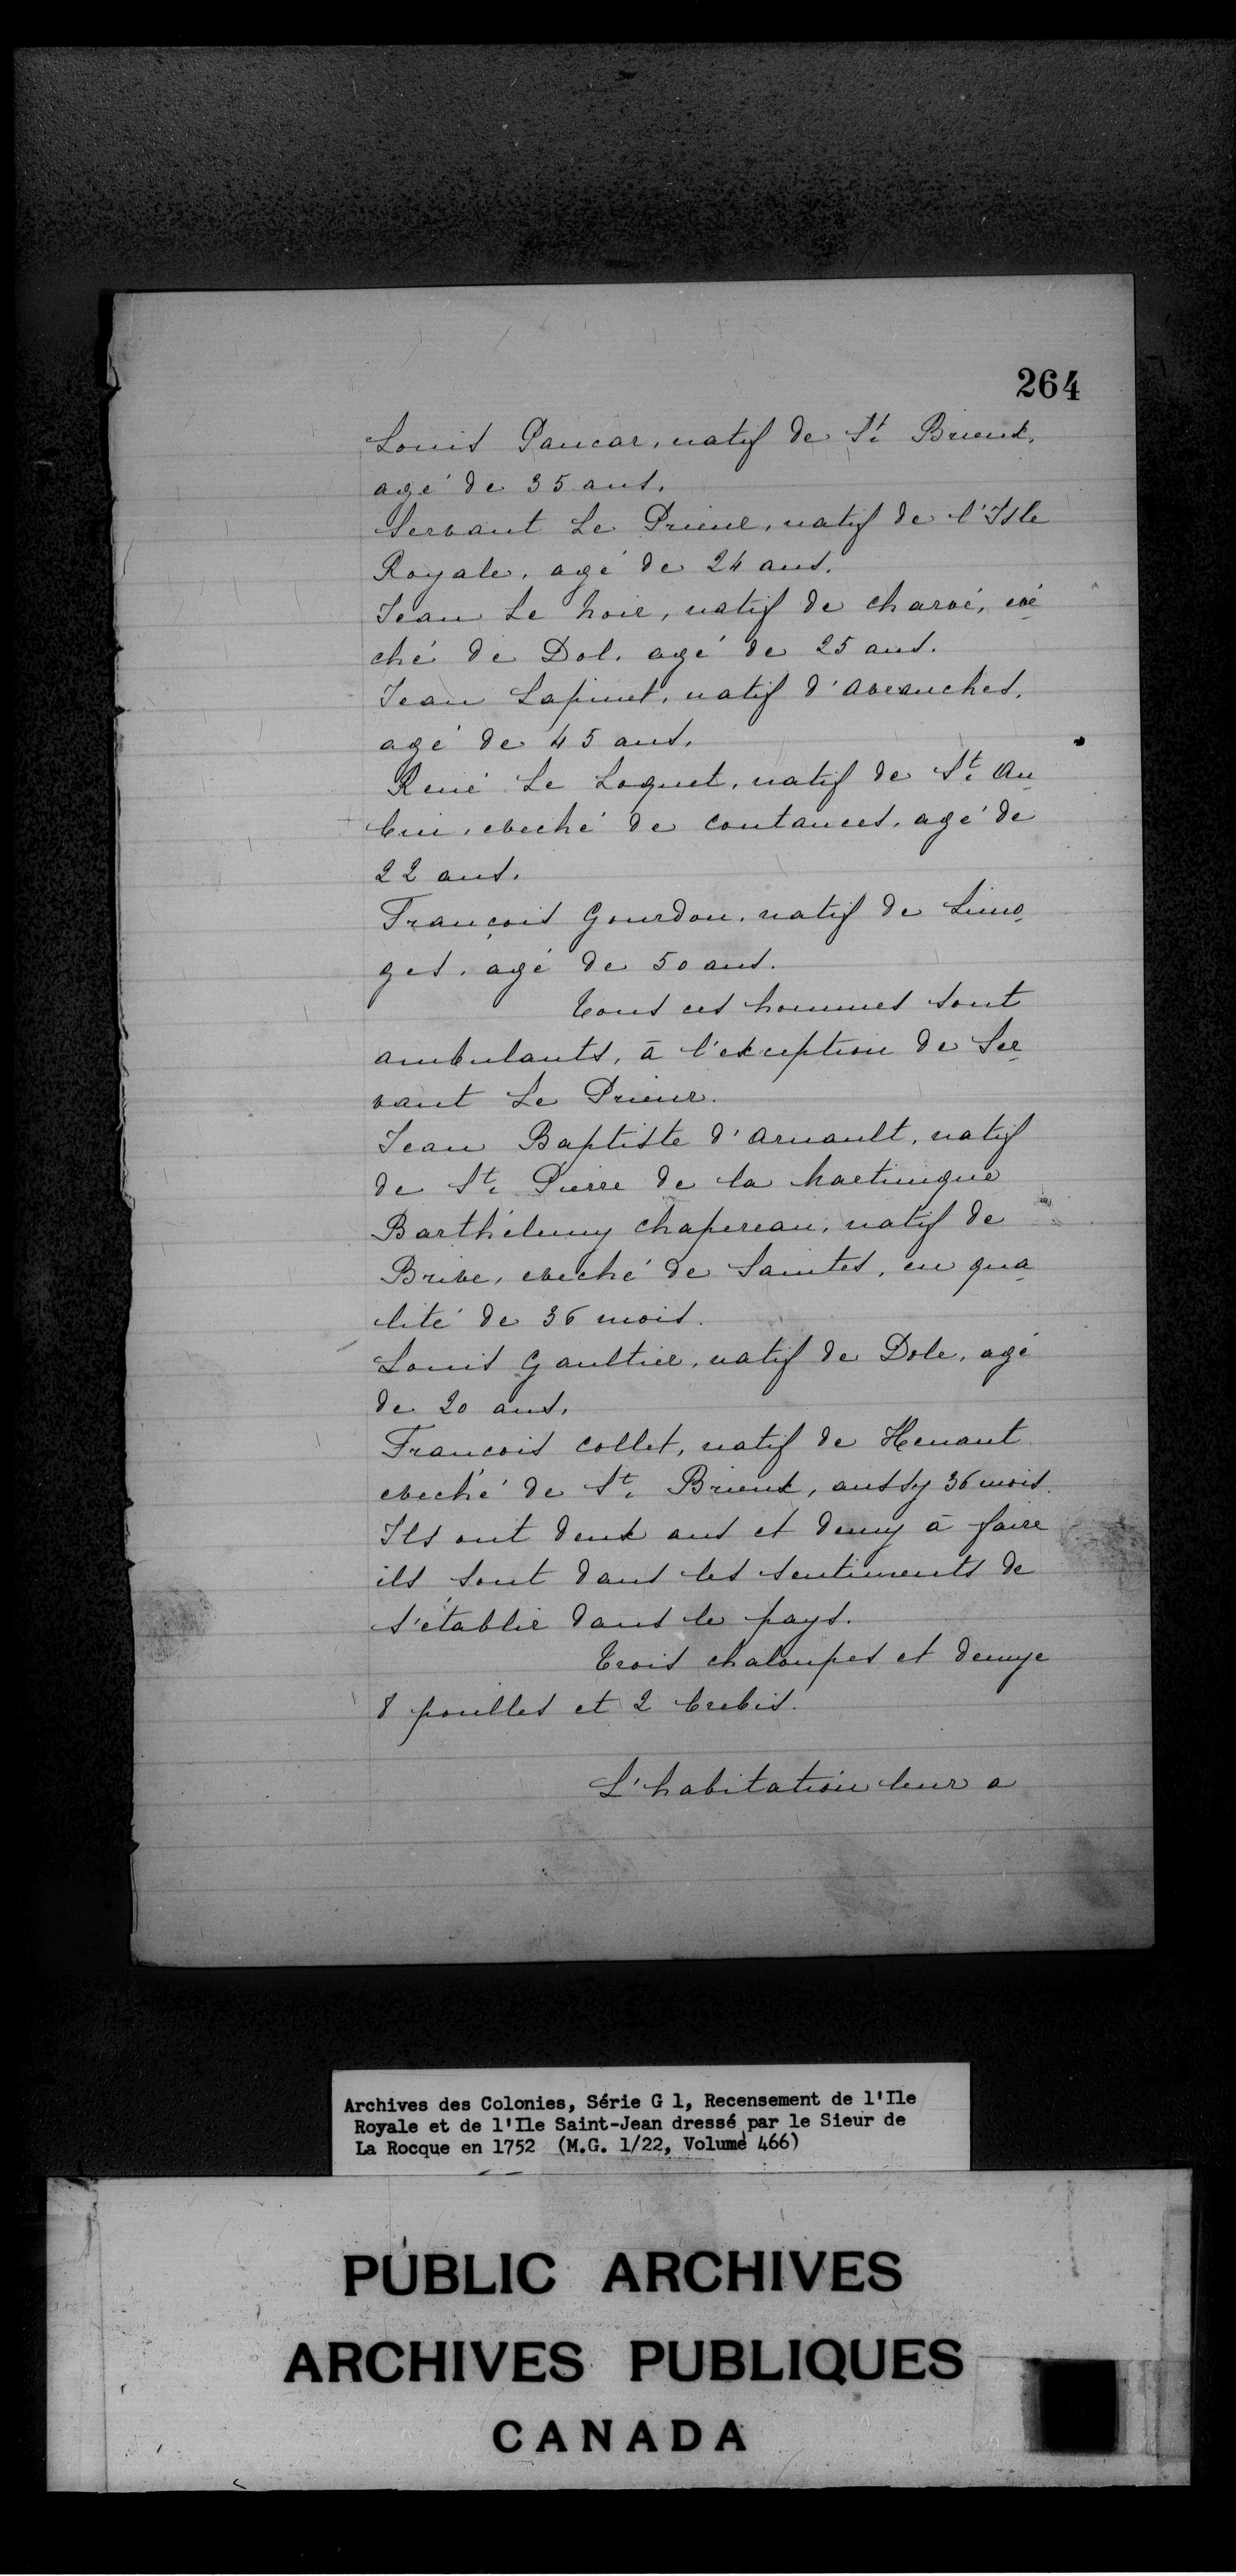 264
Louis Paucar, natif de St. Brieux,
agé de 35 ans.
Servant Le Prieur, natif de l'Isle
Royale, agé de 24 ans.
Jean Le hoir, natif de charvé, evé
ché de Dol, agé de 25 ans.
Jean Lapinet, natif d'avranches,
agé de 45 ans.
René Le Loquet, natif de St. Au
bin, eveché de coutances, agé de
22 ans.
François Gourdon, natif de Limo
ges, agé de 50 ans.
Tous ces hommes sont
ambulants, à l'exception de Ser
vant Le Prieur.
Jean Baptiste d'arnault, natif
de St. Pierre de la martinique
Barthélemy chapereau, natif de
Brive, eveché de Saintes, en qua
lité de 36 mois.
Louis Gaultier, natif de Dole, agé
de 20 ans.
François Collet, natif de Henant
eveché de St. Brieux, aussy 36 mois.
Ils ont deux ans et demy à faire
ils sont dans les sentiments de
s'établir dans le pays.
Trois chaloupes et demye
8 poulles et 2 brebis.
L'habitation leur a
Archives des Colonies, Série G 1, Recensement de l'Ile
Royale et de l'Ile Saint-Jean dressé par le Sieur de
La Rocque en 1752 (M.G. 1/22, Volume 466)
PUBLIC ARCHIVES
ARCHIVES PUBLIQUES
CANADA